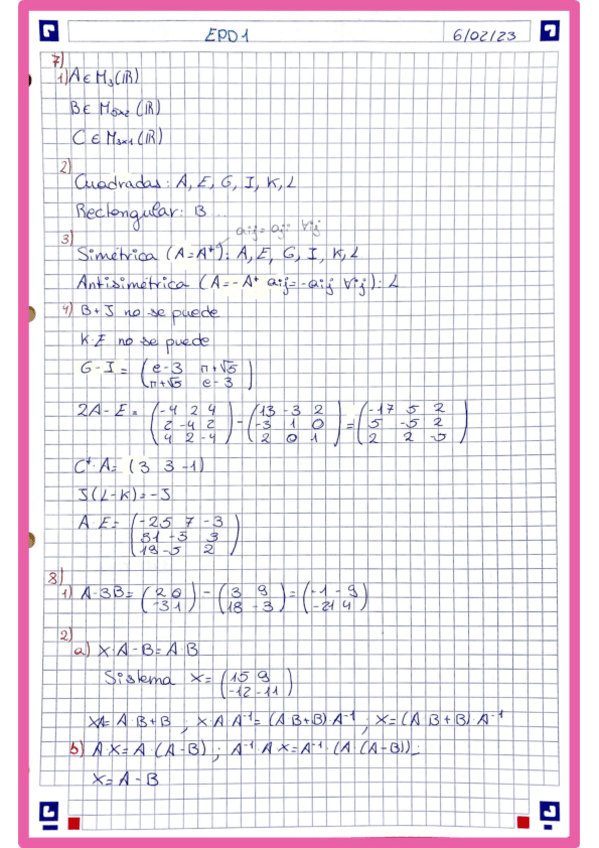 EPD1 6/02/23
7)
1) A ∈ M₃(ℝ)
B ∈ M₅ₓ₂(ℝ)
C ∈ M₃ₓ₁(ℝ)
2)
Cuadradas: A, E, G, I, K, L
Rectangular: B ...
aij = aji ∀ij
3)
Simétrica (A=Aᵗ): A, E, G, I, K, L
Antisimétrica (A=-Aᵗ aij=-aij ∀ij): L
4) B+J no se puede
K·E no se puede
G-I = (e-3 π+√5
π+√5 e-3)
2A-E = (-4 2 4
2 -4 2
4 2 -4) - (13 -3 2
-3 1 0
2 0 1) = (-17 5 2
5 -5 2
2 2 -5)
Cᵗ·A = (3 3 -1)
J(L-K) = -J
A·E = (-25 7 -3
31 -5 3
18 -5 2)
8)
1) A-3B = (2 0
-3 1) - (3 9
18 -3) = (-1 -9
-21 4)
2)
a) X·A-B = A B
Sistema X = (15 9
-12 -11)
XA = A·B+B ; X·A·A⁻¹ = (A B+B)·A⁻¹ ; X = (A B+B)·A⁻¹
b) A X = A·(A-B) ; A⁻¹·A X = A⁻¹·(A·(A-B)) ;
X = A-B